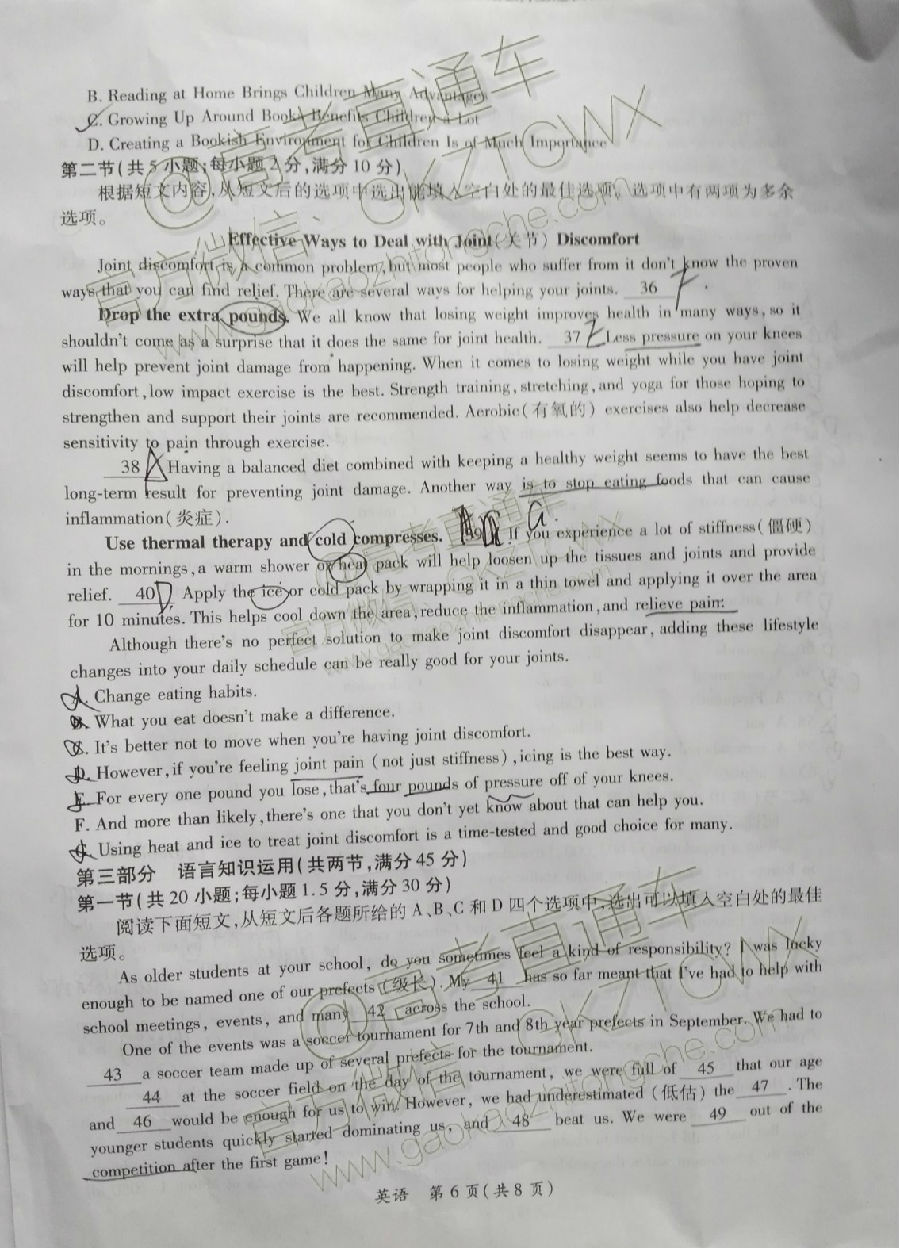 B. Reading at Home Brings Children Many Advantages
C. Growing Up Around Books Benefits Children a Lot
D. Creating a Bookish Environment for Children Is of Much Importance
第二节(共5小题;每小题2分,满分10分)
根据短文内容,从短文后的选项中选出能填入空白处的最佳选项。选项中有两项为多余
选项。
Effective Ways to Deal with Joint(关节) Discomfort
Joint discomfort is a common problem, but most people who suffer from it don't know the proven
ways that you can find relief. There are several ways for helping your joints. 36 F
Drop the extra pounds. We all know that losing weight improves health in many ways, so it
shouldn't come as a surprise that it does the same for joint health. 37 Less pressure on your knees
will help prevent joint damage from happening. When it comes to losing weight while you have joint
discomfort, low impact exercise is the best. Strength training, stretching, and yoga for those hoping to
strengthen and support their joints are recommended. Aerobic(有氧的) exercises also help decrease
sensitivity to pain through exercise.
38 A Having a balanced diet combined with keeping a healthy weight seems to have the best
long-term result for preventing joint damage. Another way is to stop eating foods that can cause
inflammation(炎症).
Use thermal therapy and cold compresses. 39 G If you experience a lot of stiffness(僵硬)
in the mornings, a warm shower or heat pack will help loosen up the tissues and joints and provide
relief. 40 D Apply the ice or cold pack by wrapping it in a thin towel and applying it over the area
for 10 minutes. This helps cool down the area, reduce the inflammation, and relieve pain.
Although there's no perfect solution to make joint discomfort disappear, adding these lifestyle
changes into your daily schedule can be really good for your joints.
A. Change eating habits.
B. What you eat doesn't make a difference.
C. It's better not to move when you're having joint discomfort.
D. However, if you're feeling joint pain (not just stiffness), icing is the best way.
E. For every one pound you lose, that's four pounds of pressure off of your knees.
F. And more than likely, there's one that you don't yet know about that can help you.
G. Using heat and ice to treat joint discomfort is a time-tested and good choice for many.
第三部分 语言知识运用(共两节,满分45分)
第一节(共20小题;每小题1.5分,满分30分)
阅读下面短文,从短文后各题所给的A、B、C和D四个选项中,选出可以填入空白处的最佳
选项。
As older students at your school, do you sometimes feel a kind of responsibility? I was lucky
enough to be named one of our prefects(级长). My 41 has so far meant that I've had to help with
school meetings, events, and many 42 across the school.
One of the events was a soccer tournament for 7th and 8th year prefects in September. We had to
43 a soccer team made up of several prefects for the tournament.
44 at the soccer field on the day of the tournament, we were full of 45 that our age
and 46 would be enough for us to win. However, we had underestimated (低估) the 47 . The
younger students quickly started dominating us, and 48 beat us. We were 49 out of the
competition after the first game!
英语 第6页(共8页)
@高考直通车
官方微信:GKZTCWX
www.gaokaozhitongche.com
@高考直通车
官方微信:GKZTCWX
www.gaokaozhitongche.com
@高考直通车
官方微信:GKZTCWX
www.gaokaozhitongche.com